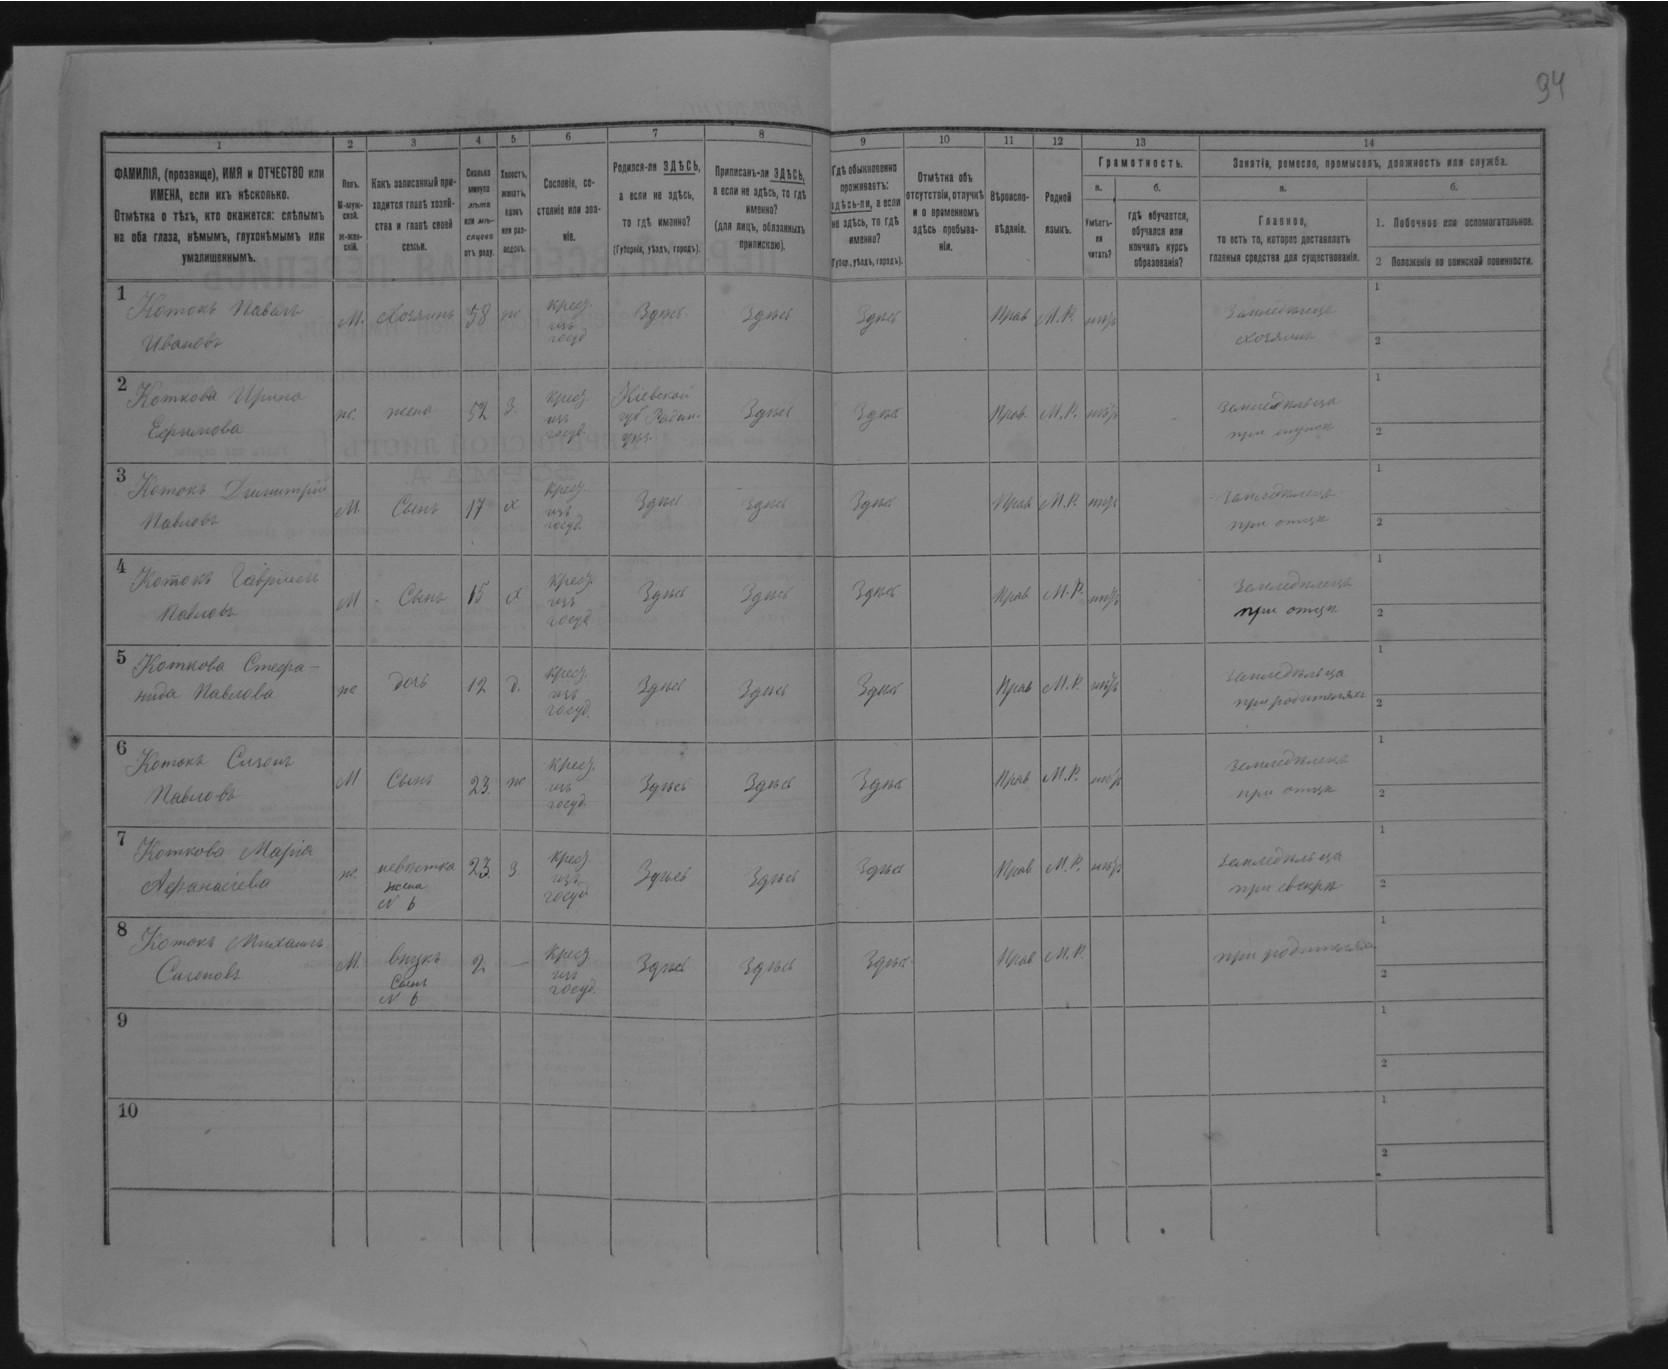 94
1
2
3
4
5
6
7
8
9
10
11
12
13
14
ФАМИЛІЯ, (прозвище), ИМЯ и ОТЧЕСТВО или
ИМЕНА, если ихъ нѣсколько.
Отмѣтка о тѣхъ, кто окажется: слѣпымъ
на оба глаза, нѣмымъ, глухонѣмымъ или
умалишеннымъ.
Полъ.
М-муж-
ской.
ж-жен-
скій.
Какъ записанный при-
ходится главѣ хозяй-
ства и главѣ своей
семьи.
Сколько
минуло
лѣтъ
или мѣ-
сяцевъ
отъ роду.
Холостъ,
женатъ,
вдовъ
или раз-
веденъ.
Сословіе, со-
стояніе или зва-
ніе.
Родился-ли ЗДѢСЬ,
а если не здѣсь,
то гдѣ именно?
(Губернія, уѣздъ, городъ).
Приписанъ-ли ЗДѢСЬ,
а если не здѣсь, то гдѣ
именно?
(для лицъ, обязанныхъ
припискою).
Гдѣ обыкновенно
проживаетъ:
здѣсь-ли, а если
не здѣсь, то гдѣ
именно?
(Губер., уѣздъ, городъ).
Отмѣтка объ
отсутствіи, отлучкѣ
и о временномъ
здѣсь пребыва-
ніи.
Вѣроиспо-
вѣданіе.
Родной
языкъ.
Грамотность.
а.
Умѣетъ-
ли
читать?
б.
гдѣ обучается,
обучался или
кончилъ курсъ
образованія?
Занятіе, ремесло, промыселъ, должность или служба.
а.
Главное,
то есть то, которое доставляетъ
главныя средства для существованія.
б.
1. Побочное или вспомогательное.
2 Положеніе по воинской повинности.
1
Котокъ Павелъ
Ивановъ
М.
Хозяинъ
58
ж
крест.
изъ
госуд
Здѣсь
Здѣсь
Здѣсь
Прав
М.Р.
Хозяинъ
1
2
2
Коткова Ирина
Ефимова
ж.
жена
52
З.
крест.
изъ
госуд.
Кіевской
губ
Здѣсь
Здѣсь
Прав.
М.Р.
Земледѣльца
1
2
3
Котокъ Димитрій
Павловъ
М.
Сынъ
17
х
крест.
изъ
госуд.
Здѣсь
Здѣсь
Здѣсь
Прав
М.Р.
при отцѣ
1
2
4
Котокъ Гавріилъ
Павловъ
М
Сынъ
15
х
крест.
изъ
госуд
Здѣсь
Здѣсь
Здѣсь
Прав
М.Р.
при отцѣ
1
2
5
Коткова Стефа-
нида Павлова
ж
дочь
12
д.
крест.
изъ
госуд.
Здѣсь
Здѣсь
Здѣсь
Прав
М.Р.
земледѣльца
при родителяхъ
1
2
6
Котокъ
Павловъ
М
Сынъ
23.
ж
крест.
изъ
госуд.
Здѣсь
Здѣсь
Здѣсь
Прав
М.Р.
при отцѣ
1
2
7
Коткова Марія
Афанасіева
ж.
невѣстка
жена
N 6
23.
З
крест.
изъ
госуд
Здѣсь
Здѣсь
Здѣсь
Прав
М.Р.
земледѣльца
при свекрѣ
1
2
8
Котокъ Михаилъ
М.
внукъ
Сынъ
N 6
2
—
крест.
изъ
госуд.
Здѣсь
Здѣсь
Здѣсь
Прав
М.Р.
при родителяхъ
1
2
9
1
2
10
1
2